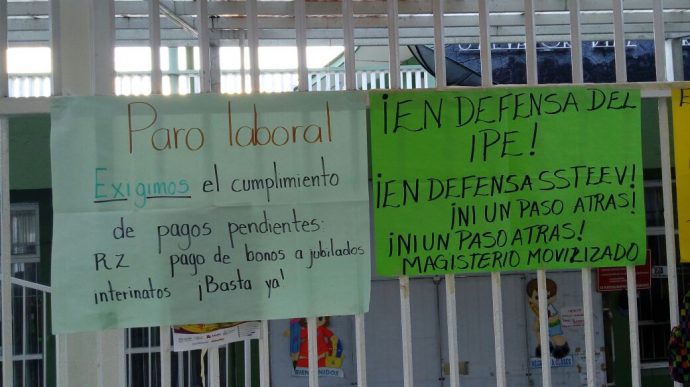 Paro laboral
Exigimos el cumplimiento
de pagos pendientes:
RZ pago de bonos a jubilados
interinatos ¡Basta ya!
¡EN DEFENSA DEL
IPE!
¡EN DEFENSA SSTEEV!
¡NI UN PASO ATRAS!
¡NI UN PASO ATRAS!
MAGISTERIO MOVILIZADO
BIENVENIDOS